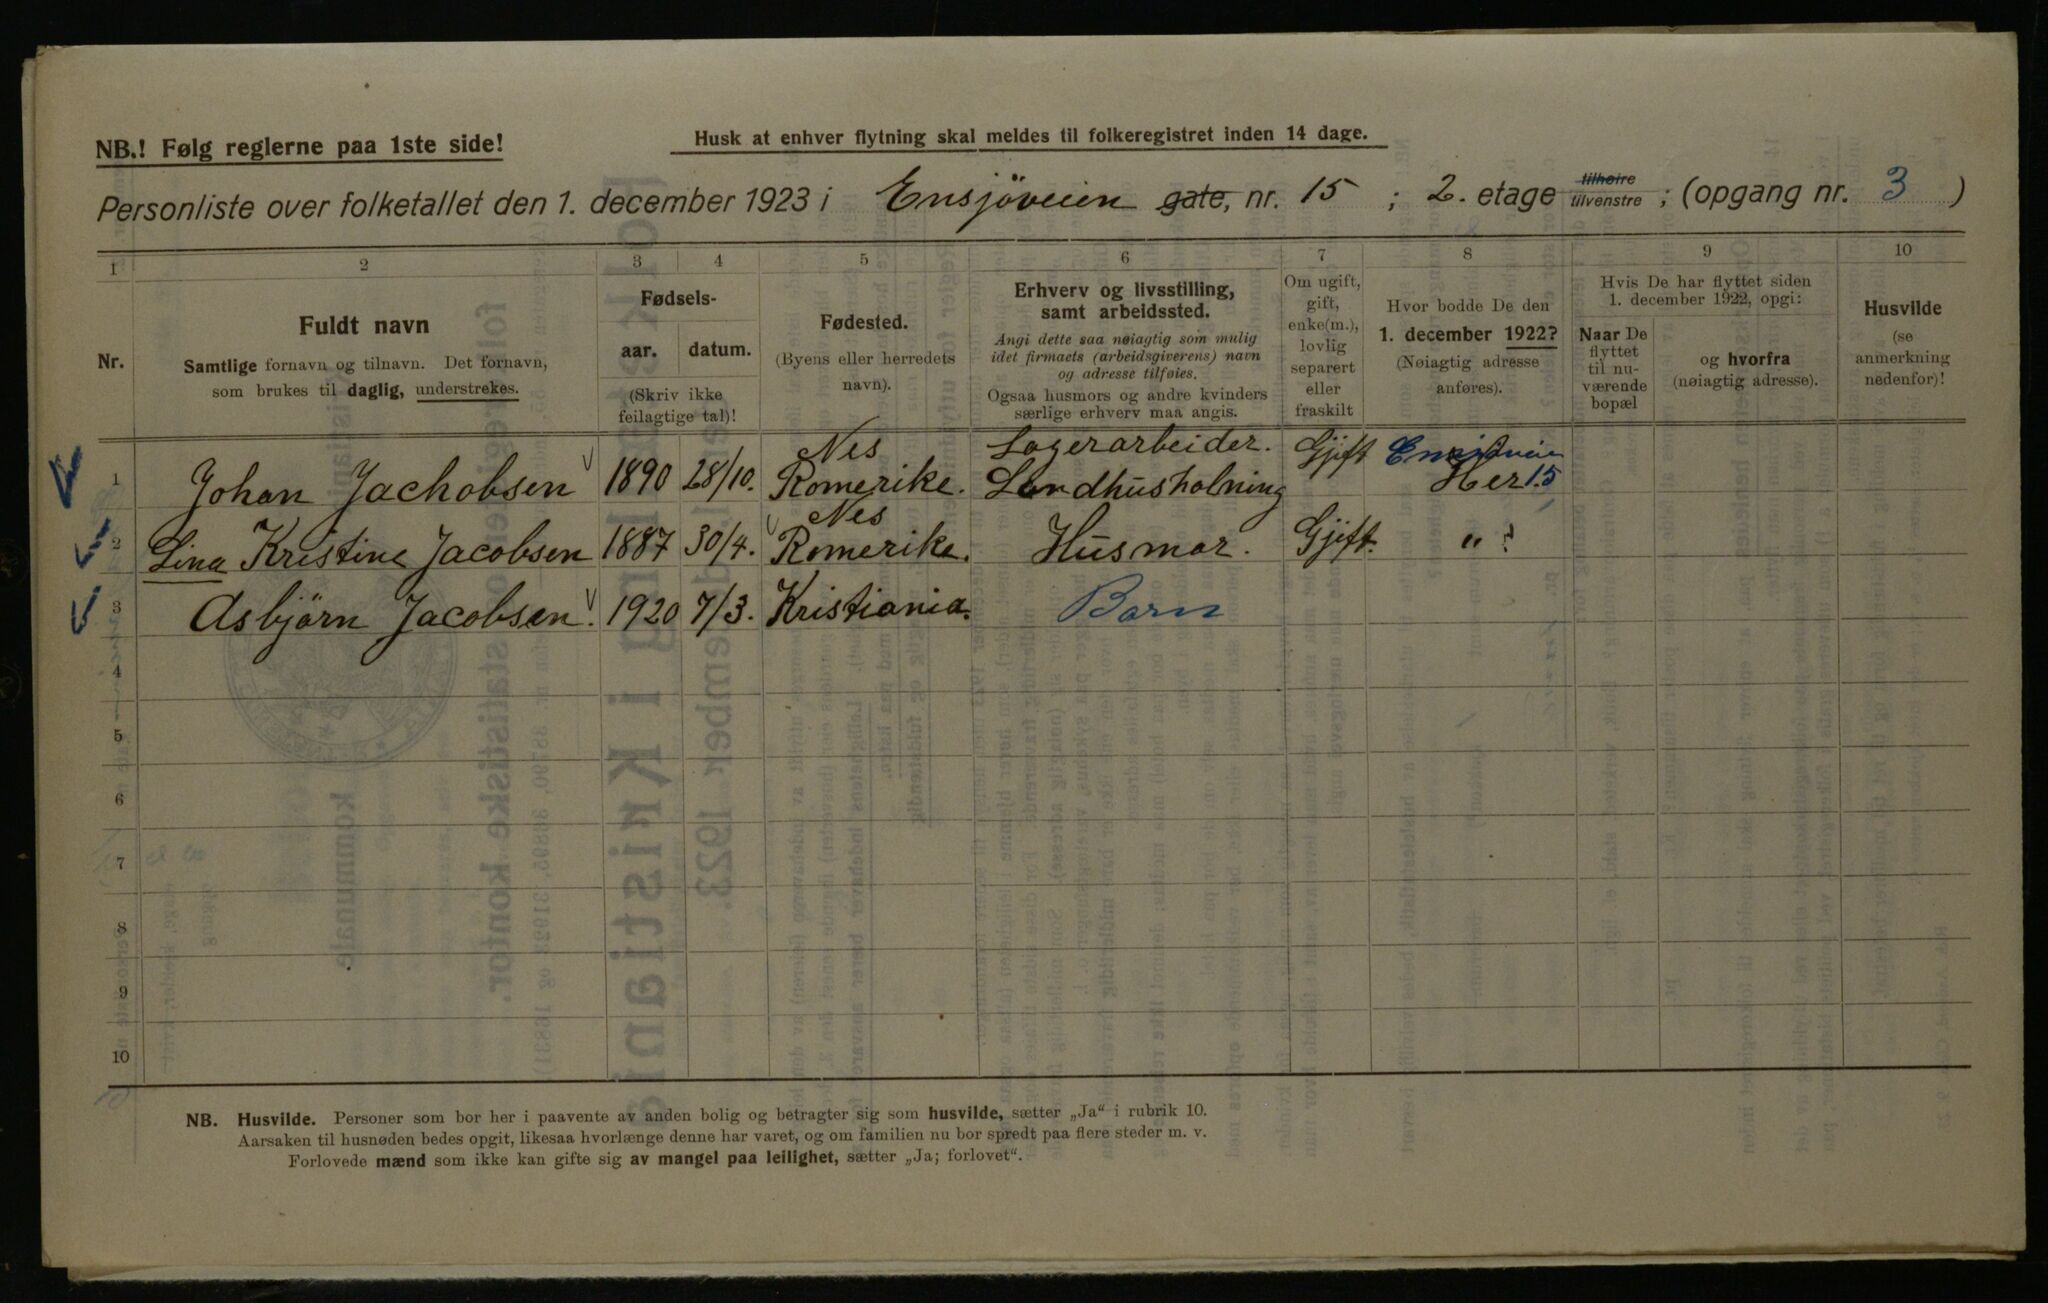 NB.! Følg reglerne paa 1ste side!
Husk at enhver flytning skal meldes til folkeregistret inden 14 dage.
Personliste over folketallet den 1. december 1923 i Ensjöveien gate, nr. 15 ; 2. etage tilhøire tilvenstre ; (opgang nr. 3 )
1 2 3 4 5 6 7 8 9 10
Nr.
Fuldt navn
Samtlige fornavn og tilnavn. Det fornavn,
som brukes til daglig, understrekes.
Fødsels-
aar. datum.
(Skriv ikke
feilagtige tal)!
Fødested.
(Byens eller herredets
navn).
Erhverv og livsstilling,
samt arbeidssted.
Angi dette saa nøiagtig som mulig
idet firmaets (arbeidsgiverens) navn
og adresse tilføies.
Ogsaa husmors og andre kvinders
særlige erhverv maa angis.
Om ugift,
gift,
enke(m.),
lovlig
separert
eller
fraskilt
Hvor bodde De den
1. december 1922?
(Nøiagtig adresse
anføres).
Hvis De har flyttet siden
1. december 1922, opgi:
Naar De
flyttet
til nu-
værende
bopæl
og hvorfra
(nøiagtig adresse).
Husvilde
(se
anmerkning
nedenfor)!
1 Johan Jachobsen 1890 28/10. Nes Romerike. Lagerarbeider. Landhusholning Gjift Her 15
2 Lina Kristine Jacobsen 1887 30/4. Nes Romerike. Husmor. Gjift. "
3 Asbjörn Jacobsen. 1920 7/3. Kristiania. Barn
4
5
6
7
8
9
10
NB. Husvilde. Personer som bor her i paavente av anden bolig og betragter sig som husvilde, sætter „Ja“ i rubrik 10.
Aarsaken til husnøden bedes opgit, likesaa hvorlænge denne har varet, og om familien nu bor spredt paa flere steder m. v.
Forlovede mænd som ikke kan gifte sig av mangel paa leilighet, sætter „Ja; forlovet“.